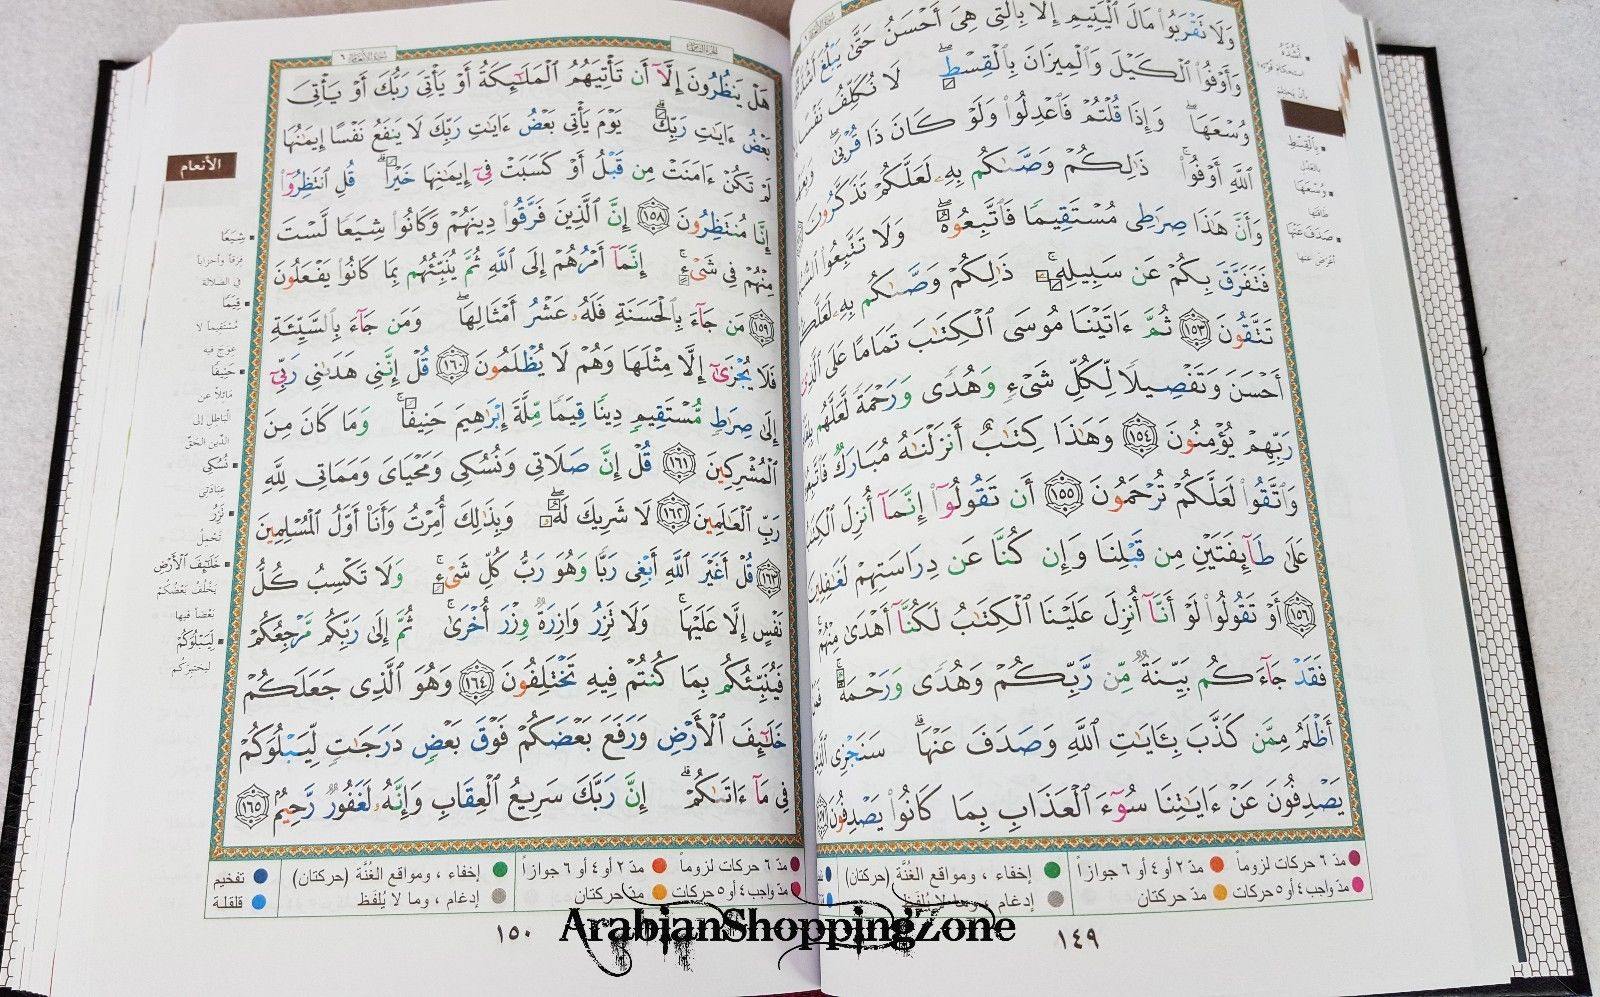 وَلَا تَقْرَبُوا۟ مَالَ ٱلْيَتِيمِ إِلَّا بِٱلَّتِى هِىَ أَحْسَنُ حَتَّىٰ يَبْلُغَ أَشُدَّهُۥ
وَأَوْفُوا۟ ٱلْكَيْلَ وَٱلْمِيزَانَ بِٱلْقِسْطِ لَا نُكَلِّفُ نَفْسًا
وُسْعَهَا وَإِذَا قُلْتُمْ فَٱعْدِلُوا۟ وَلَوْ كَانَ ذَا قُرْبَىٰ
ٱللَّهِ أَوْفُوا۟ ذَٰلِكُمْ وَصَّىٰكُم بِهِۦ لَعَلَّكُمْ تَذَكَّرُونَ
وَأَنَّ هَٰذَا صِرَٰطِى مُسْتَقِيمًا فَٱتَّبِعُوهُ وَلَا تَتَّبِعُوا۟
فَتَفَرَّقَ بِكُمْ عَن سَبِيلِهِۦ ذَٰلِكُمْ وَصَّىٰكُم بِهِۦ
تَتَّقُونَ ١٥٣ ثُمَّ ءَاتَيْنَا مُوسَى ٱلْكِتَٰبَ تَمَامًا عَلَى
أَحْسَنَ وَتَفْصِيلًا لِّكُلِّ شَىْءٍ وَهُدًى وَرَحْمَةً لَّعَلَّهُم
رَبِّهِمْ يُؤْمِنُونَ ١٥٤ وَهَٰذَا كِتَٰبٌ أَنزَلْنَٰهُ مُبَارَكٌ
وَٱتَّقُوا۟ لَعَلَّكُمْ تُرْحَمُونَ ١٥٥ أَن تَقُولُوٓا۟ إِنَّمَآ أُنزِلَ
عَلَىٰ طَآئِفَتَيْنِ مِن قَبْلِنَا وَإِن كُنَّا عَن دِرَاسَتِهِمْ لَغَٰفِلِينَ
١٥٦ أَوْ تَقُولُوا۟ لَوْ أَنَّآ أُنزِلَ عَلَيْنَا ٱلْكِتَٰبُ لَكُنَّآ أَهْدَىٰ مِنْهُمْ
فَقَدْ جَآءَكُم بَيِّنَةٌ مِّن رَّبِّكُمْ وَهُدًى وَرَحْمَةٌ
أَظْلَمُ مِمَّن كَذَّبَ بِـَٔايَٰتِ ٱللَّهِ وَصَدَفَ عَنْهَا سَنَجْزِى
يَصْدِفُونَ عَنْ ءَايَٰتِنَا سُوٓءَ ٱلْعَذَابِ بِمَا كَانُوا۟ يَصْدِفُونَ
بِٱلْقِسْطِ
بالعدل
وُسْعَهَا
طاقتها
صَدَفَ عَنْهَا
أعرض عنها
مدّ ٦ حركات لزوماً مدّ ٢ أو ٤ أو ٦ جوازاً إخفاء ، ومواقع الغُنَّة (حركتان)
مدّ واجب ٤ أو ٥ حركات مدّ حركتان إدغام ، وما لا يُلفَظ
١٤٩
هَلْ يَنظُرُونَ إِلَّآ أَن تَأْتِيَهُمُ ٱلْمَلَٰٓئِكَةُ أَوْ يَأْتِىَ رَبُّكَ أَوْ يَأْتِىَ
بَعْضُ ءَايَٰتِ رَبِّكَ يَوْمَ يَأْتِى بَعْضُ ءَايَٰتِ رَبِّكَ لَا يَنفَعُ نَفْسًا إِيمَٰنُهَا
لَمْ تَكُنْ ءَامَنَتْ مِن قَبْلُ أَوْ كَسَبَتْ فِىٓ إِيمَٰنِهَا خَيْرًا قُلِ ٱنتَظِرُوٓا۟
إِنَّا مُنتَظِرُونَ ١٥٨ إِنَّ ٱلَّذِينَ فَرَّقُوا۟ دِينَهُمْ وَكَانُوا۟ شِيَعًا لَّسْتَ
مِنْهُمْ فِى شَىْءٍ إِنَّمَآ أَمْرُهُمْ إِلَى ٱللَّهِ ثُمَّ يُنَبِّئُهُم بِمَا كَانُوا۟ يَفْعَلُونَ
١٥٩ مَن جَآءَ بِٱلْحَسَنَةِ فَلَهُۥ عَشْرُ أَمْثَالِهَا وَمَن جَآءَ بِٱلسَّيِّئَةِ
فَلَا يُجْزَىٰٓ إِلَّا مِثْلَهَا وَهُمْ لَا يُظْلَمُونَ ١٦٠ قُلْ إِنَّنِى هَدَىٰنِى رَبِّىٓ
إِلَىٰ صِرَٰطٍ مُّسْتَقِيمٍ دِينًا قِيَمًا مِّلَّةَ إِبْرَٰهِيمَ حَنِيفًا وَمَا كَانَ مِنَ
ٱلْمُشْرِكِينَ ١٦١ قُلْ إِنَّ صَلَاتِى وَنُسُكِى وَمَحْيَاىَ وَمَمَاتِى لِلَّهِ
رَبِّ ٱلْعَٰلَمِينَ ١٦٢ لَا شَرِيكَ لَهُۥ وَبِذَٰلِكَ أُمِرْتُ وَأَنَا۠ أَوَّلُ ٱلْمُسْلِمِينَ
١٦٣ قُلْ أَغَيْرَ ٱللَّهِ أَبْغِى رَبًّا وَهُوَ رَبُّ كُلِّ شَىْءٍ وَلَا تَكْسِبُ كُلُّ
نَفْسٍ إِلَّا عَلَيْهَا وَلَا تَزِرُ وَازِرَةٌ وِزْرَ أُخْرَىٰ ثُمَّ إِلَىٰ رَبِّكُم مَّرْجِعُكُمْ
فَيُنَبِّئُكُم بِمَا كُنتُمْ فِيهِ تَخْتَلِفُونَ ١٦٤ وَهُوَ ٱلَّذِى جَعَلَكُمْ
خَلَٰٓئِفَ ٱلْأَرْضِ وَرَفَعَ بَعْضَكُمْ فَوْقَ بَعْضٍ دَرَجَٰتٍ لِّيَبْلُوَكُمْ
فِى مَآ ءَاتَىٰكُمْ إِنَّ رَبَّكَ سَرِيعُ ٱلْعِقَابِ وَإِنَّهُۥ لَغَفُورٌ رَّحِيمٌ ١٦٥
الأنعام
شِيَعًا
فرقاً وأحزاباً
في الضلالة
قِيَمًا
مُستقيماً لا
عِوَجَ فيه
حَنِيفًا
مائلاً عن
الباطل إلى
الدِّين الحَقّ
نُسُكِى
عبادتي
تَزِرُ
تَحْمِلُ
خَلَٰٓئِفَ ٱلْأَرْضِ
يَخْلُفُ بَعْضُكُمْ
بَعْضاً فيها
لِّيَبْلُوَكُمْ
ليختبركُم
مدّ ٦ حركات لزوماً مدّ ٢ أو ٤ أو ٦ جوازاً إخفاء ، ومواقع الغُنَّة (حركتان) تفخيم
مدّ واجب ٤ أو ٥ حركات مدّ حركتان إدغام ، وما لا يُلفَظ قلقلة
١٥٠
ArabianShoppingZone